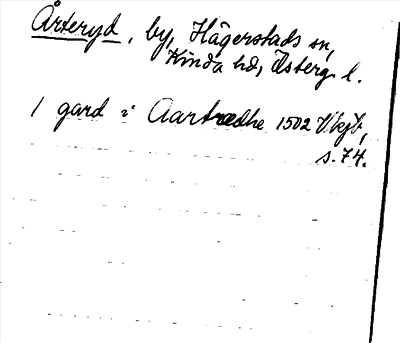 Årteryd, by, Hägerstads sn,
Kinda hd, Österg. l.
1 gard i Aartredhe 1502 Vkjb,
s. 74.